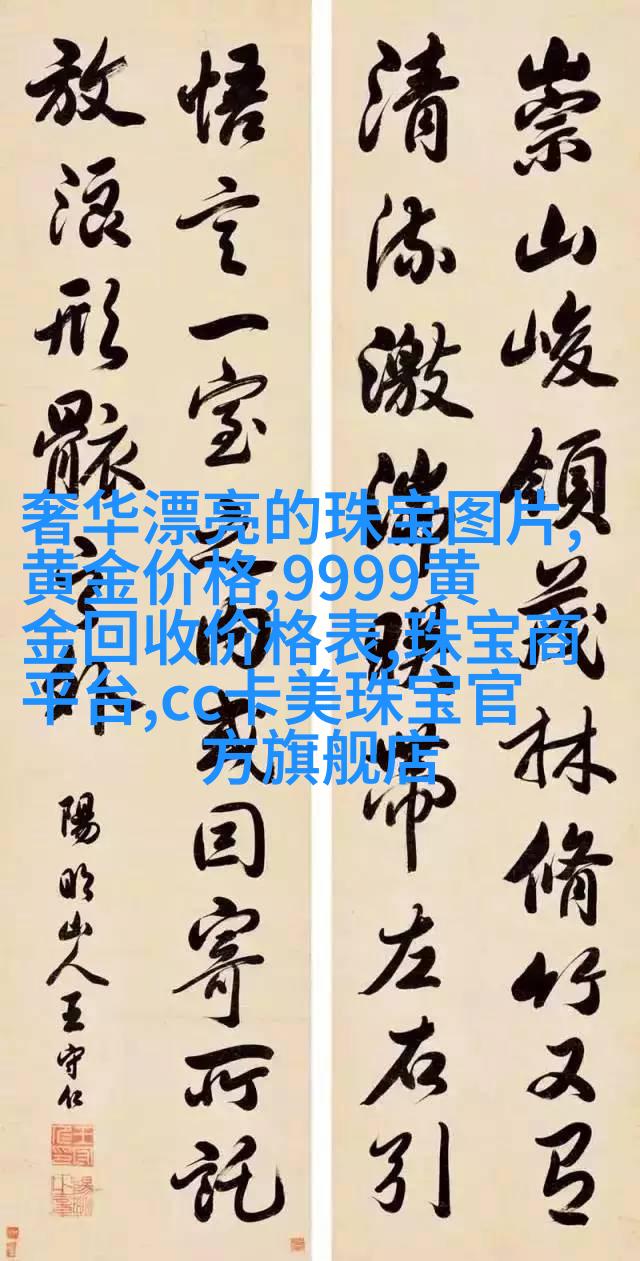 崇山峻領茂林脩竹又有
清流激湍暎帶左右引
悟言一室之内或因寄所託
放浪形骸之外
陽明山人王守仁
奢华漂亮的珠宝图片,
黄金价格,9999黄
金回收价格表,珠宝商
平台,cc卡美珠宝官
方旗舰店